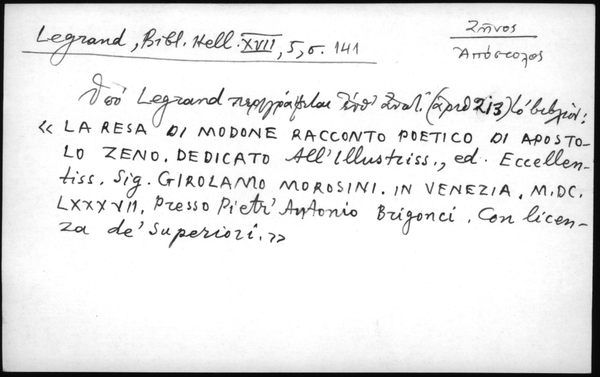 Legrand, Bibl. Hell. XVII, 5, σ. 141
Ζῆνος
Ἀπόστολος
Ὑπό Legrand περιγράφεται (ἀριθ 213) τό βιβλίον:
« LA RESA DI MODONE RACCONTO POETICO DI APOSTO-
LO ZENO. DEDICATO All'Illustriss., ed. Eccellen-
tiss. Sig. GIROLAMO MOROSINI. IN VENEZIA, M.DC.
LXXXVII, Presso Pietr' Antonio Brigonci. Con licen-
za de' Superiori. »